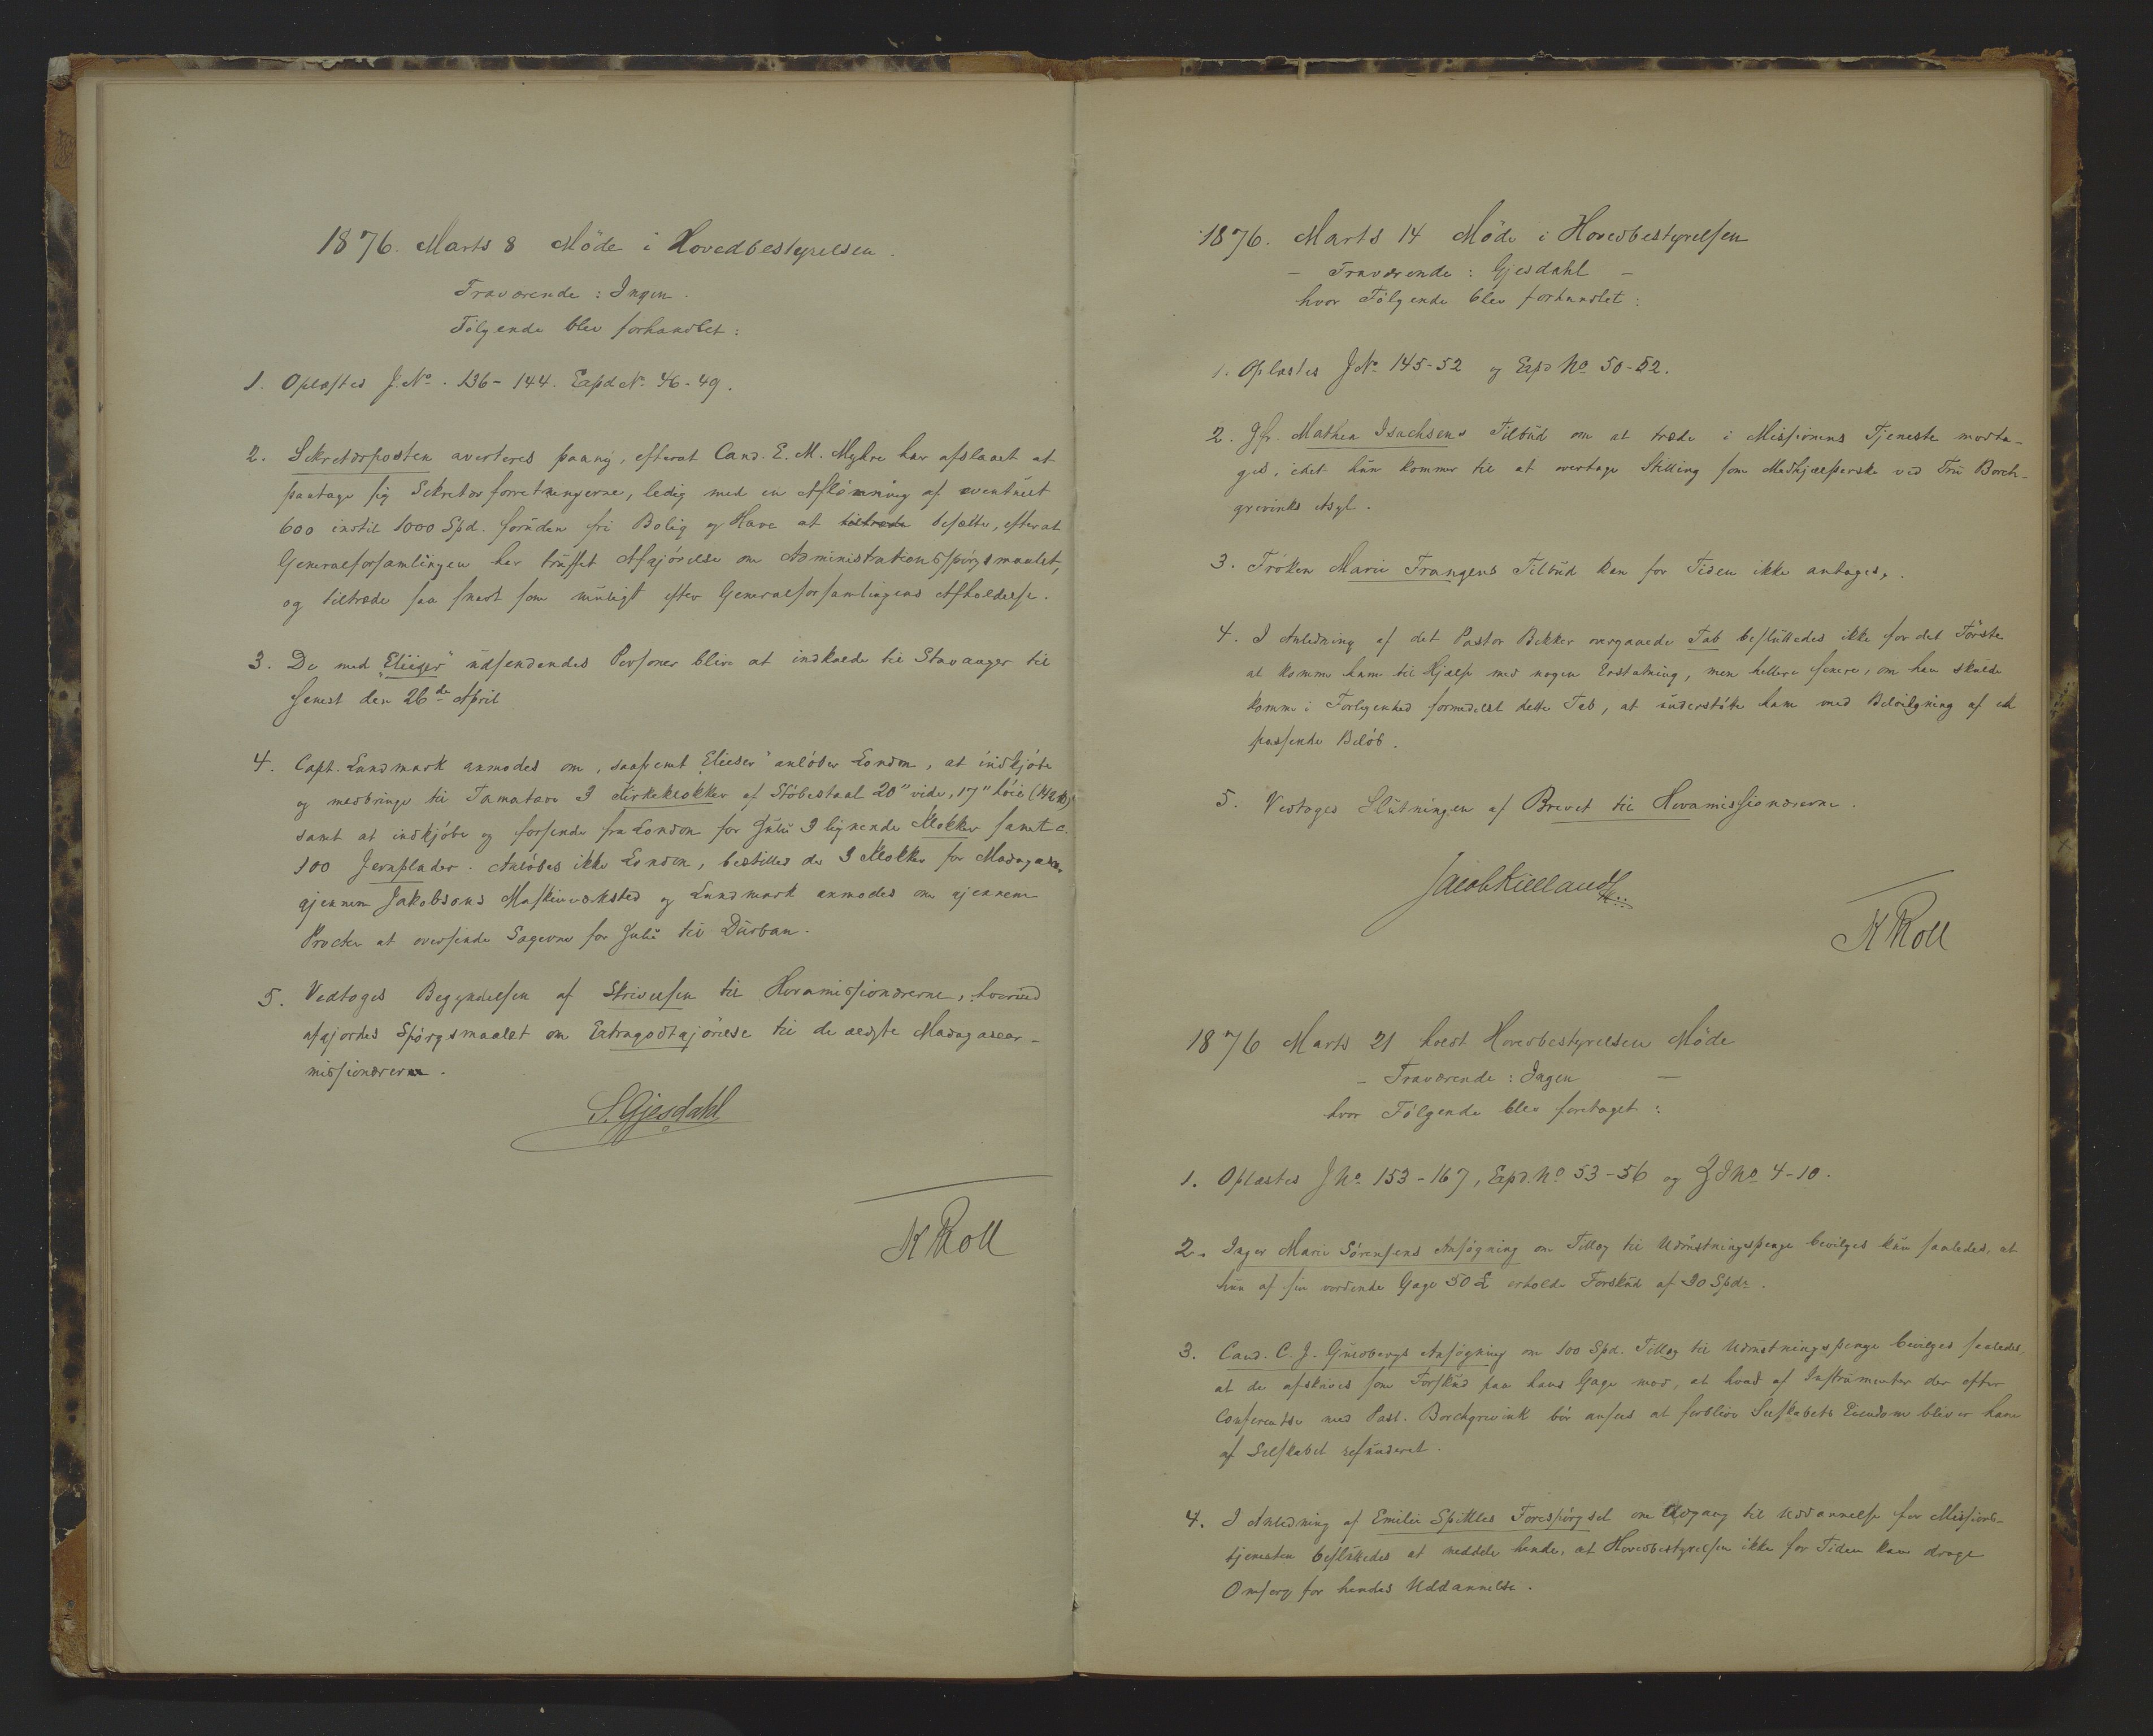 1876. Marts 8 Møde i Hovedbestyrelsen.
Fraværende: Ingen.
Følgende blev forhandlet:
1. Oplæstes J. No. 136-144. Expd No 46-49.
2. Sekretærposten averteres paany, efterat Cand. E. M. Myhre har afslaaet at
paatage sig Sekretærforretningerne, ledig med en Aflönning af eventuelt
600 indtil 1000 Spd. foruden fri Bolig og Have at tiltræde besætte, efterat
Generalforsamlingen har truffet Afgjörelse om Administrationsspörgsmaalet,
og tiltræde saa snart som muligt efter Generalforsamlingens Afholdelse.
3. De med "Elieser" udsendendes Personer blive at indkalde til Stavanger til
senest den 26de April
4. Capt. Landmark anmodes om, saafremt "Elieser" anlöber London, at indkjöbe
og medbringe til Tamatave 3 Kirkeklokker af Stöbestaal 20" vide, 17" höie
samt at indkjöbe og forsende fra London for Zulu 3 lignende Klokker samt c.
100 Jernplader. Anlöbes ikke London, bestilles de 3 Klokker for Madagascar
gjennem Jakobsons Maskinværksted og Landmark anmodes om gjennem
Procter at oversende Sagerne for Zulu til Durban.
5. Vedtoges Begyndelsen af Skrivelsen til Hovamissionærerne, hvorved
afgjordes Spörgsmaalet om Extragodtgjörelse til de ældste Madagascar-
missionærerne.
S. Gjesdahl
K Roll
1876. Marts 14 Möde i Hovedbestyrelsen
- Fraværende: Gjesdahl -
hvor Fölgende blev forhandlet:
1. Oplæstes J No 145-52 og Expd No 50-52.
2. Jfr. Mathea Isachsens Tilbud om at træde i Missionens Tjeneste modta-
ges, idet hun kommer til at overtage Stilling som Medhjælperske ved Fru Borch-
grevinks Asyl.
3. Fröken Marie Frangens Tilbud kan for Tiden ikke antages.
4. I Anledning af det Pastor Bekker overgaaede Tab besluttedes ikke for det Förste
at komme ham til Hjælp med nogen Erstatning, men hellere senere, om han skulde
komme i Forlegenhed formedelst dette Tab, at understötte ham med Bevilgning af et
passende Belöb.
5. Vedtoges Slutningen af Brevet til Hovamissionærerne.
Jacob Kielland
K Roll
1876 Marts 21 holdt Hovedbestyrelsen Möde
- Fraværende: Ingen -
hvor Fölgende blev foretaget:
1. Oplæstes J No 153-167, Expd. No 53-56 og No 4-10.
2. Inger Marie Sörensens Ansögning om Tillæg til Udrustningspenge bevilges kun saaledes, at
hun af sin vordende Gage 50 £ erholde Forskud af 30 Spd.
3. Cand. C. J. Guldbergs Ansögning om 100 Spd. Tillæg til Udrustningspenge bevilges saaledes
at de afskrives som Forskud paa hans Gage mod, at hvad af Instrumenter der efter
Conference med Past. Borchgrevink bör ansees at forblive Selskabets Eiendom bliver ham
af Selskabet refunderet.
4. I Anledning af Emilie Spilles Forespörgsel om Adgang til Uddannelse for Missions-
tjenesten besluttedes at meddele hende, at Hovedbestyrelsen ikke for Tiden kan drage
Omsorg for hendes Uddannelse.